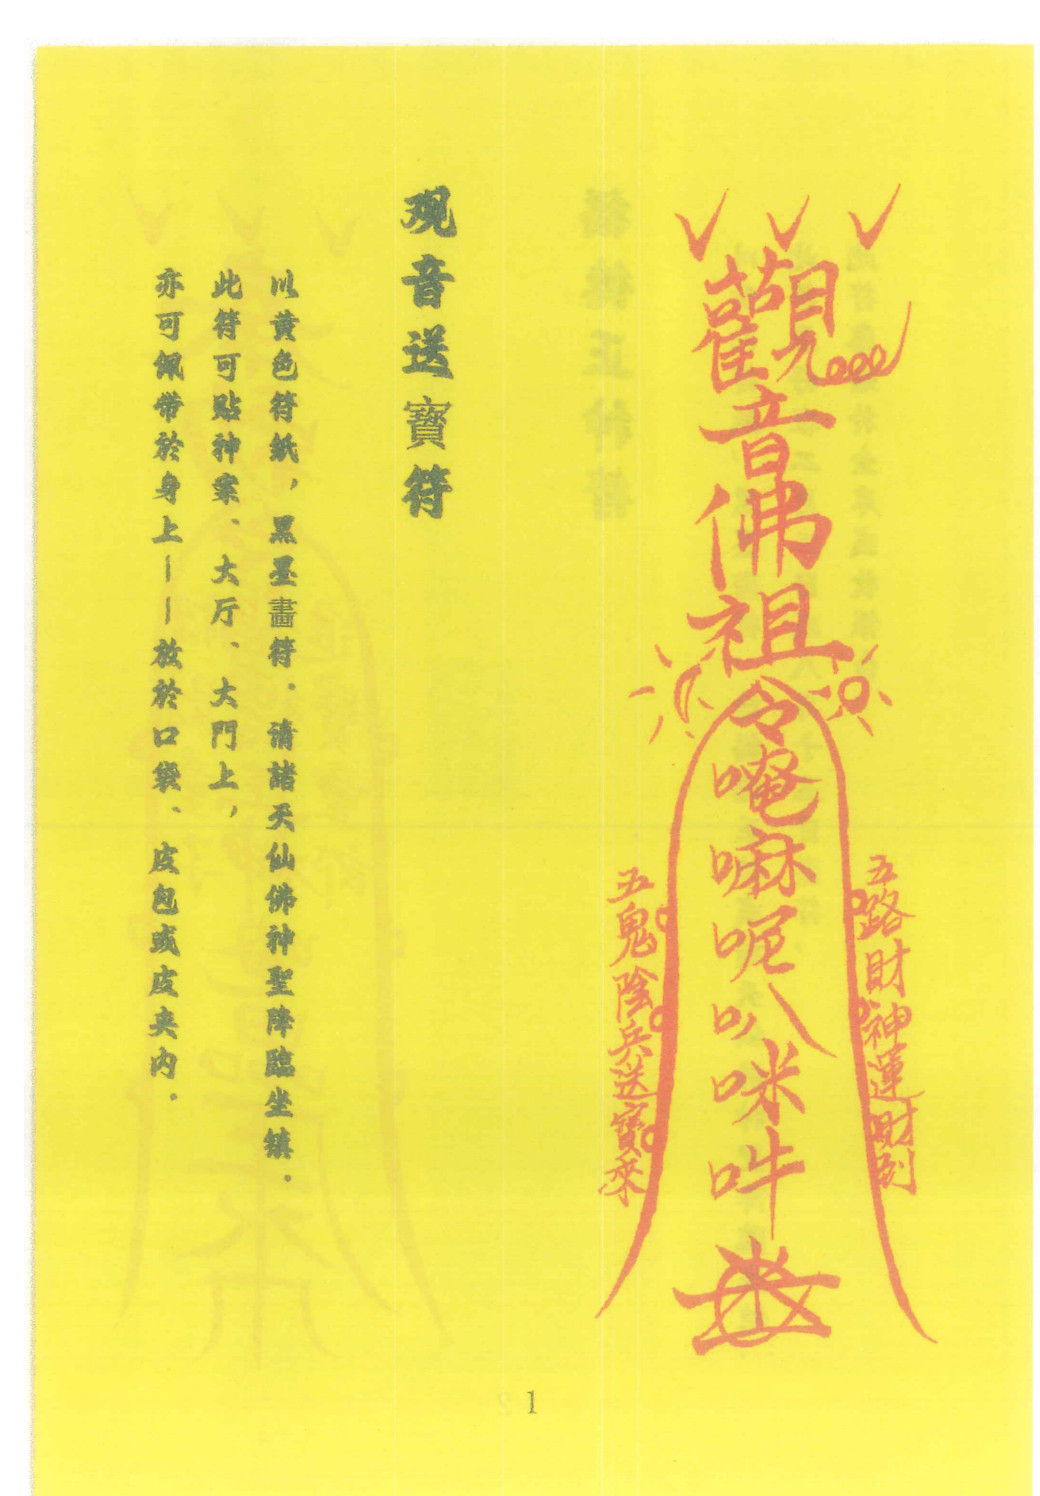 觀音佛祖
令唵嘛呢叭咪吽
五路財神運財到
五鬼陰兵送寶來
观音送寶符
以黄色符紙，黑墨畫符．请諸天仙佛神聖降臨坐镇．
此符可貼神案、大厅、大門上，
亦可佩带於身上——放於口袋、皮包或皮夹内．
1